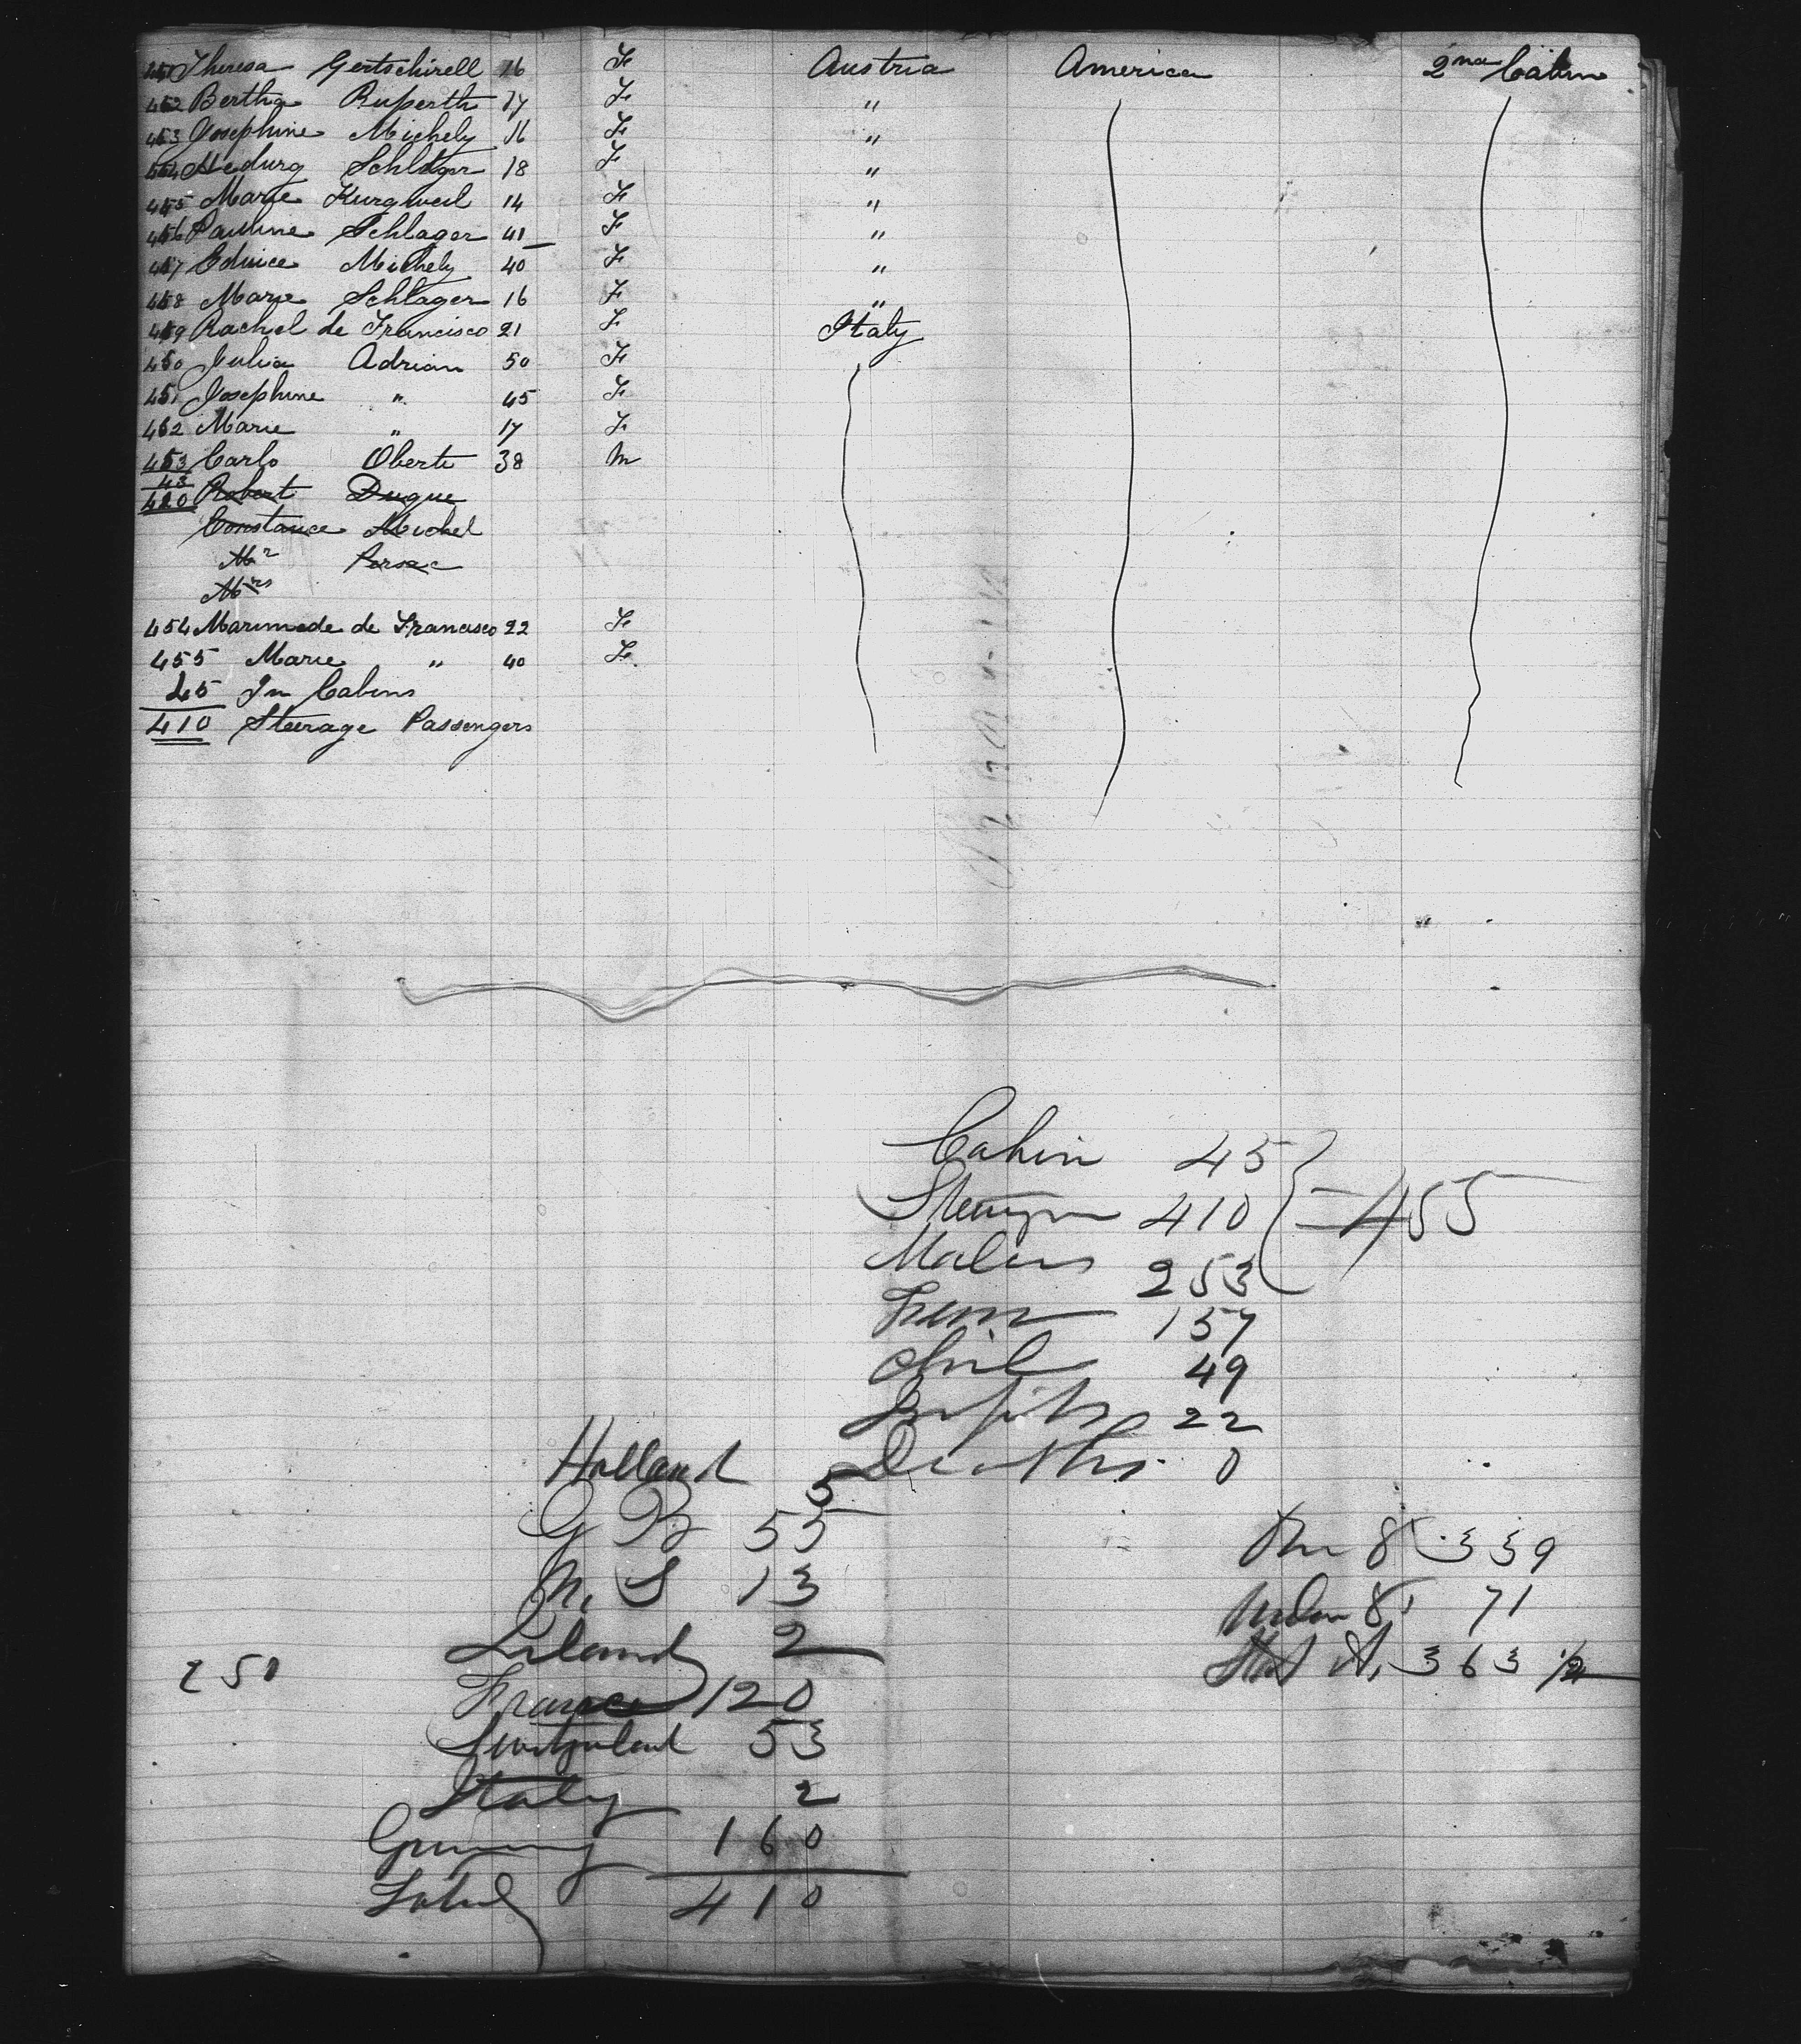 441 Theresa Gertschirell 16 F Austria America 2nd Cabin
442 Bertha Ruperth 17 F "
443 Josephine Michely 16 F "
444 Hedurg Schlager 18 F "
445 Marie Kurgweil 14 F "
446 Pauline Schlager 41 F "
447 Edwice Michely 40 F "
448 Marie Schlager 16 F "
449 Rachel de Francisco 21 F Italy
450 Julia Adrian 50 F
451 Josephine " 45 F
452 Marie " 17 F
453 Carlo Oberti 38 M
43
420 Robert Dugue
Constance Michel
Mr Persac
Mrs
454 Marimede de Francisco 22 F
455 Marie " 40 F
45 In Cabins
410 Steerage Passengers
Cabin 45
Steerage 410 = 455
Males 253
Fem 157
Chil 49
Infts 22
Deaths 0
Holland 5
G B 55
N. S 13
Irland 2
France 120
Switzerland 53
Italy 2
Germany 160
Total 410
250
Over 8 339
Under 8 71
Stat A, 363 1/2